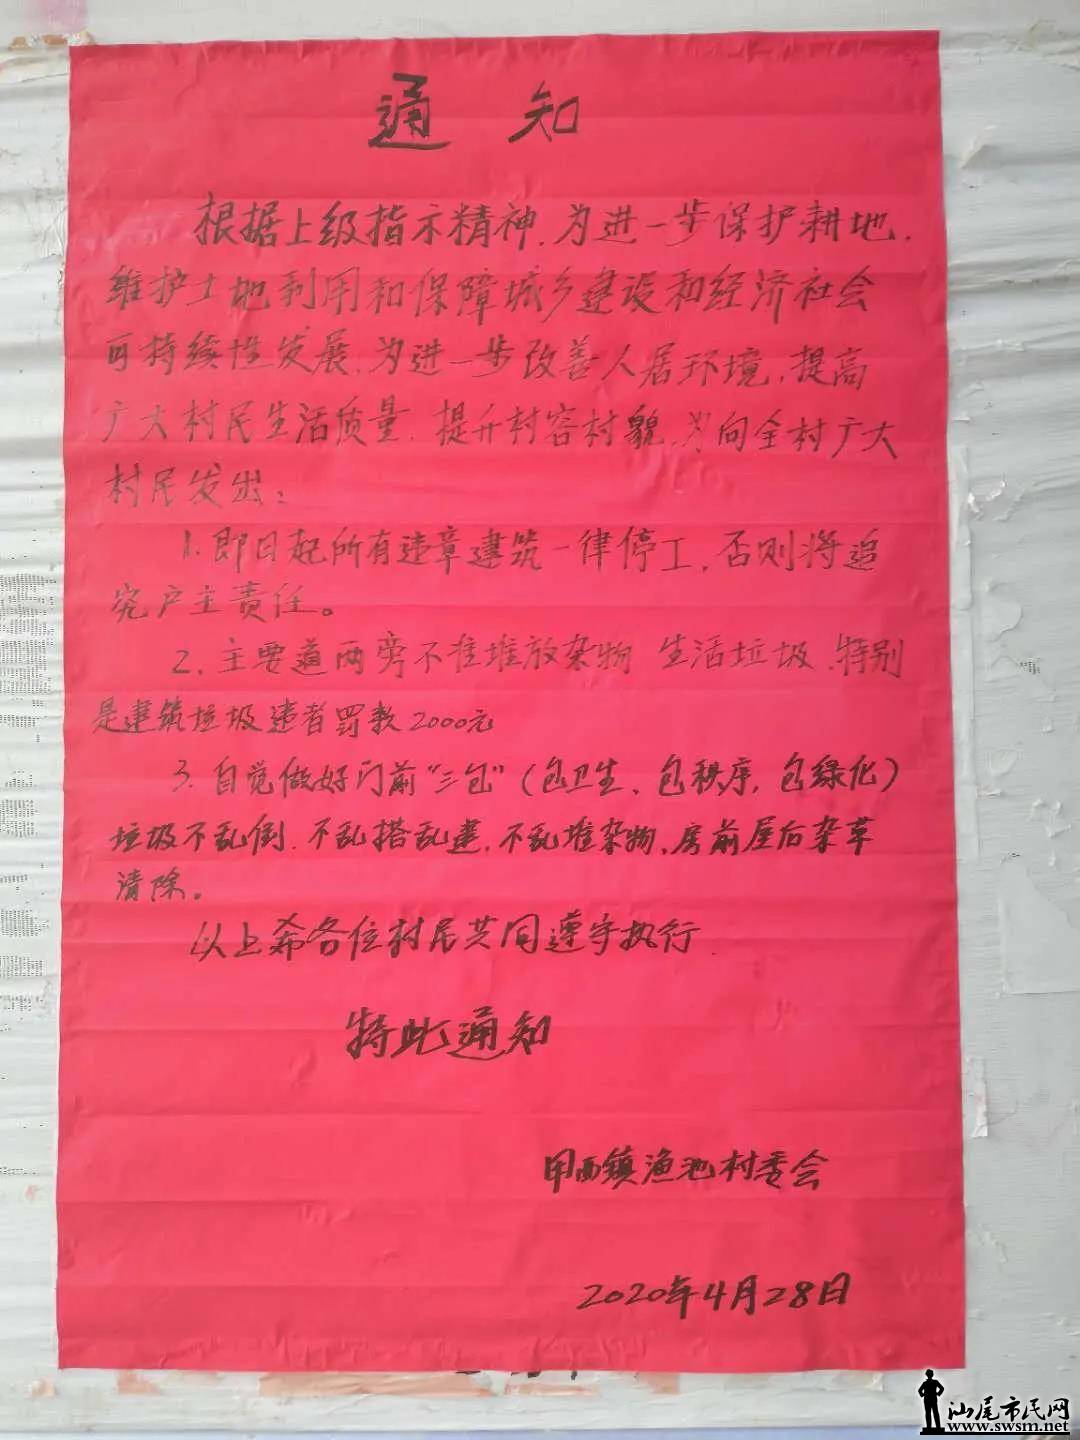 通 知
根据上级指示精神,为进一步保护耕地,
维护土地利用和保障城乡建设和经济社会
可持续性发展,为进一步改善人居环境,提高
广大村民生活质量,提升村容村貌,为向全村广大
村民发出:
1.即日起所有违章建筑一律停工,否则将追
究户主责任。
2.主要道两旁不准堆放杂物 生活垃圾,特别
是建筑垃圾违者罚款2000元
3.自觉做好门前“三包”(包卫生、包秩序,包绿化)
垃圾不乱倒,不乱搭乱建,不乱堆杂物、房前屋后杂草
清除。
以上希各位村民共同遵守执行.
特此通知
甲西镇渔池村委会
2020年4月28日
汕尾市民网
www.swsm.net